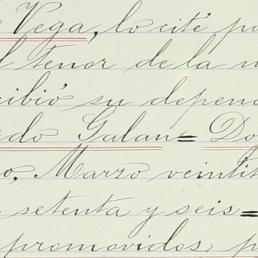 Vega, lo cité pa
el tenor de la n
cibió su depend
do Galan= Do
o, Marzo veintit
setenta y seis=
promovidos, p